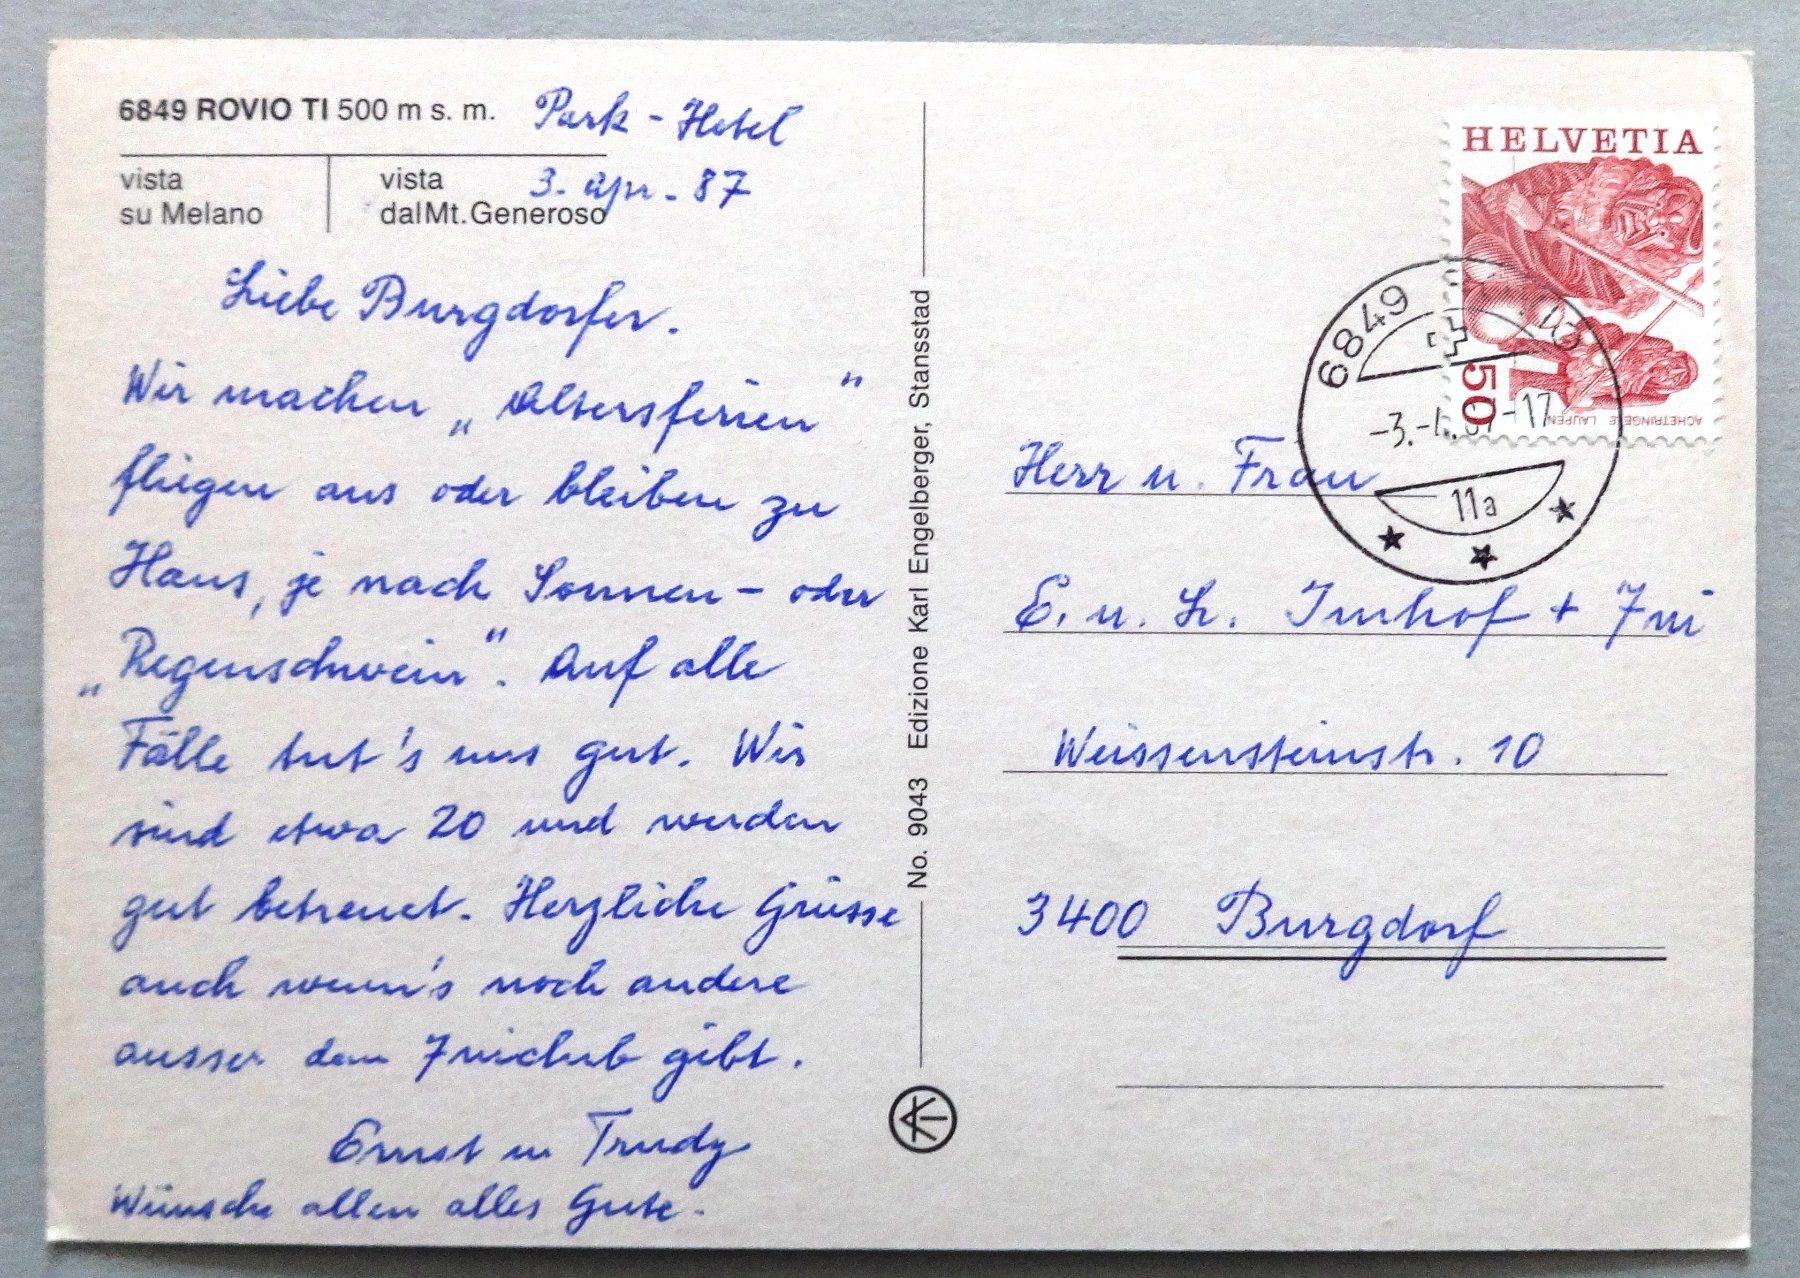 6849 ROVIO TI 500 m s. m.
Park-Hotel
vista
su Melano
vista
dal Mt. Generoso
3. Apr. 87
Liebe Burgdorfer.
Wir machen „Altersferien"
fliegen aus oder bleiben zu
Haus, je nach Sonnen- oder
„Regenschwein". Auf alle
Fälle tut's uns gut. Wir
sind etwa 20 und werden
gut betreuet. Herzliche Grüsse
auch wenn's noch andere
ausser dem gibt.
Ernst u Trudy
Wünsche allen alles Gute.
No. 9043 Edizione Karl Engelberger, Stansstad
HELVETIA
50
ACHETRINGELE LAUPEN
6849
-3.-4.87-17
11a
Herr u. Frau
E. u. H. Imhof +
Weissensteinstr. 10
3400 Burgdorf